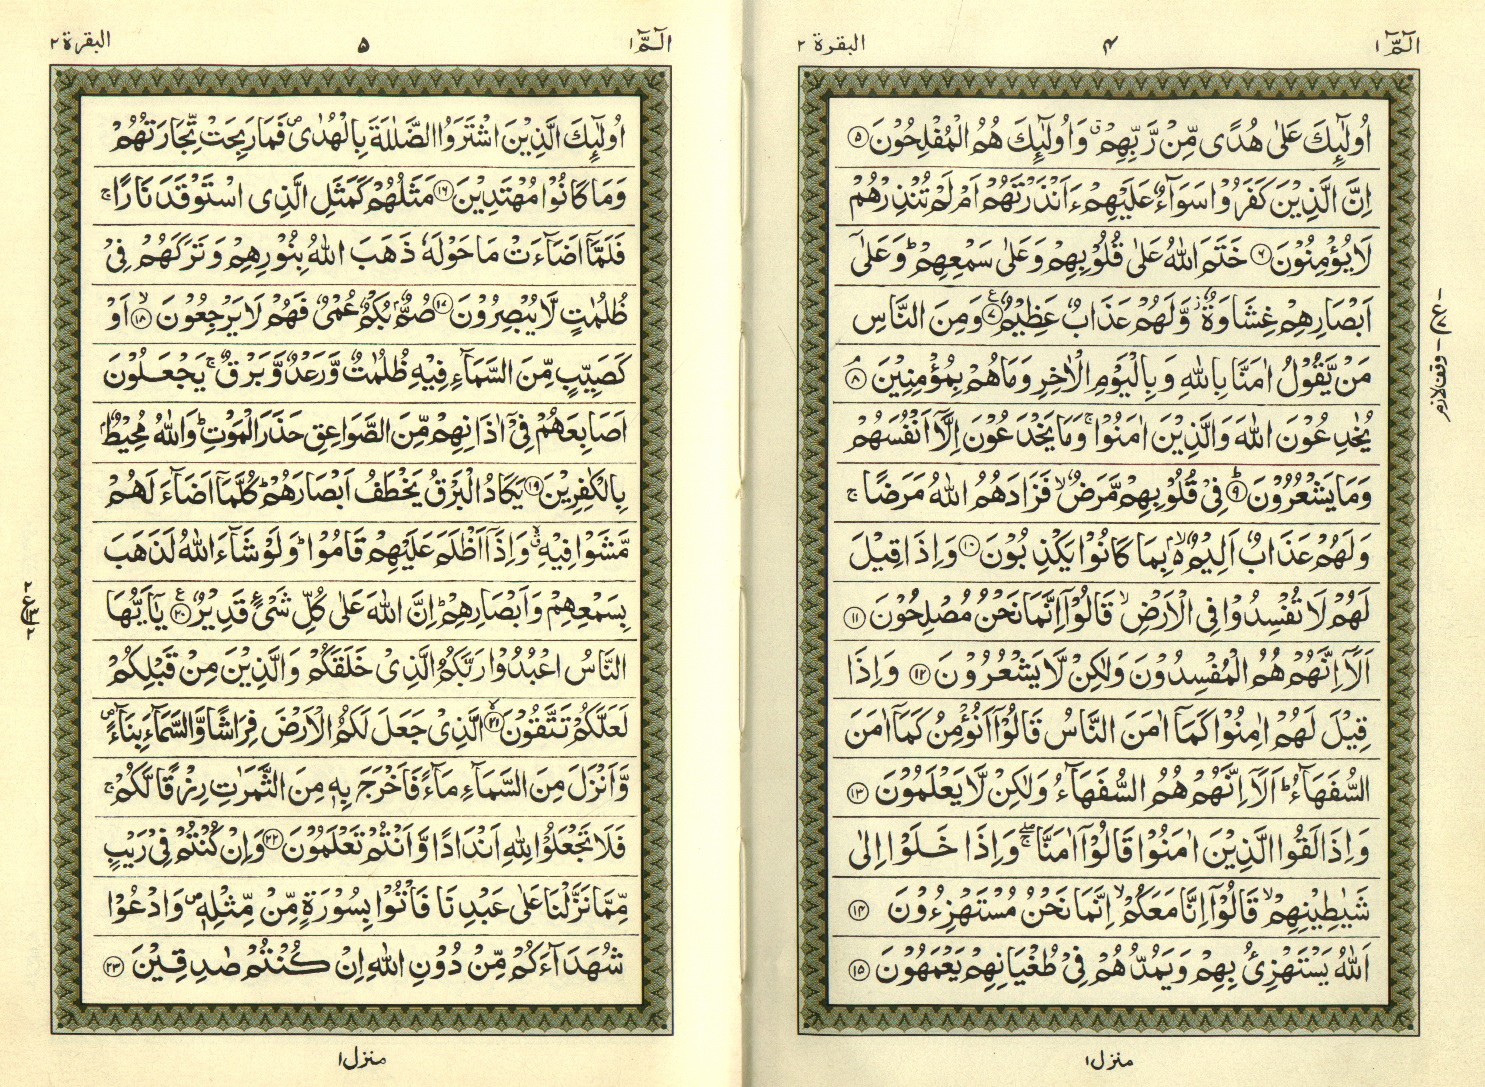 الٓمّٓ ١
۴
البقرة ٢
اُولٰٓئِكَ عَلٰى هُدًى مِّنْ رَّبِّهِمْ ۗ وَاُولٰٓئِكَ هُمُ الْمُفْلِحُوْنَ ۵
اِنَّ الَّذِيْنَ كَفَرُوْا سَوَآءٌ عَلَيْهِمْ ءَاَنْذَرْتَهُمْ اَمْ لَمْ تُنْذِرْهُمْ
لَا يُؤْمِنُوْنَ ۶ خَتَمَ اللّٰهُ عَلٰى قُلُوْبِهِمْ وَعَلٰى سَمْعِهِمْ ؕ وَعَلٰٓى
اَبْصَارِهِمْ غِشَاوَةٌ ز وَّلَهُمْ عَذَابٌ عَظِيْمٌ ۷ ع وَمِنَ النَّاسِ
مَنْ يَّقُوْلُ اٰمَنَّا بِاللّٰهِ وَبِالْيَوْمِ الْاٰخِرِ وَمَا هُمْ بِمُؤْمِنِيْنَ ۘ ۸
يُخٰدِعُوْنَ اللّٰهَ وَالَّذِيْنَ اٰمَنُوْا ۚ وَمَا يَخْدَعُوْنَ اِلَّآ اَنْفُسَهُمْ
وَمَا يَشْعُرُوْنَ ؕ ۹ فِيْ قُلُوْبِهِمْ مَّرَضٌ ۙ فَزَادَهُمُ اللّٰهُ مَرَضًا ۚ
وَلَهُمْ عَذَابٌ اَلِيْمٌ ۙ۬ بِمَا كَانُوْا يَكْذِبُوْنَ ۱۰ وَاِذَا قِيْلَ
لَهُمْ لَا تُفْسِدُوْا فِى الْاَرْضِ ۙ قَالُوْٓا اِنَّمَا نَحْنُ مُصْلِحُوْنَ ۱۱
اَلَآ اِنَّهُمْ هُمُ الْمُفْسِدُوْنَ وَلٰكِنْ لَّا يَشْعُرُوْنَ ۱۲ وَاِذَا
قِيْلَ لَهُمْ اٰمِنُوْا كَمَآ اٰمَنَ النَّاسُ قَالُوْٓا اَنُؤْمِنُ كَمَآ اٰمَنَ
السُّفَهَآءُ ؕ اَلَآ اِنَّهُمْ هُمُ السُّفَهَآءُ وَلٰكِنْ لَّا يَعْلَمُوْنَ ۱۳
وَاِذَا لَقُوا الَّذِيْنَ اٰمَنُوْا قَالُوْٓا اٰمَنَّا ۚۖ وَاِذَا خَلَوْا اِلٰى
شَيٰطِيْنِهِمْ ۙ قَالُوْٓا اِنَّا مَعَكُمْ ۙ اِنَّمَا نَحْنُ مُسْتَهْزِءُوْنَ ۱۴
اَللّٰهُ يَسْتَهْزِئُ بِهِمْ وَيَمُدُّهُمْ فِيْ طُغْيَانِهِمْ يَعْمَهُوْنَ ۱۵
وقف لازم
منزل ١
الٓمّٓ ١
۵
البقرة ٢
اُولٰٓئِكَ الَّذِيْنَ اشْتَرَوُا الضَّلٰلَةَ بِالْهُدٰى ۪ فَمَا رَبِحَتْ تِّجَارَتُهُمْ
وَمَا كَانُوْا مُهْتَدِيْنَ ۱۶ مَثَلُهُمْ كَمَثَلِ الَّذِى اسْتَوْقَدَ نَارًا ۚ
فَلَمَّآ اَضَآءَتْ مَا حَوْلَهٗ ذَهَبَ اللّٰهُ بِنُوْرِهِمْ وَتَرَكَهُمْ فِيْ
ظُلُمٰتٍ لَّا يُبْصِرُوْنَ ۱۷ صُمٌّۢ بُكْمٌ عُمْىٌ فَهُمْ لَا يَرْجِعُوْنَ ۙ ۱۸ اَوْ
كَصَيِّبٍ مِّنَ السَّمَآءِ فِيْهِ ظُلُمٰتٌ وَّرَعْدٌ وَّبَرْقٌ ۚ يَجْعَلُوْنَ
اَصَابِعَهُمْ فِيْٓ اٰذَانِهِمْ مِّنَ الصَّوَاعِقِ حَذَرَ الْمَوْتِ ؕ وَاللّٰهُ مُحِيْطٌۢ
بِالْكٰفِرِيْنَ ۱۹ يَكَادُ الْبَرْقُ يَخْطَفُ اَبْصَارَهُمْ ؕ كُلَّمَآ اَضَآءَ لَهُمْ
مَّشَوْا فِيْهِ ۙۗ وَاِذَآ اَظْلَمَ عَلَيْهِمْ قَامُوْا ؕ وَلَوْ شَآءَ اللّٰهُ لَذَهَبَ
بِسَمْعِهِمْ وَاَبْصَارِهِمْ ؕ اِنَّ اللّٰهَ عَلٰى كُلِّ شَىْءٍ قَدِيْرٌ ۲۰ ع يٰٓاَيُّهَا
النَّاسُ اعْبُدُوْا رَبَّكُمُ الَّذِيْ خَلَقَكُمْ وَالَّذِيْنَ مِنْ قَبْلِكُمْ
لَعَلَّكُمْ تَتَّقُوْنَ ۙ ۲۱ الَّذِيْ جَعَلَ لَكُمُ الْاَرْضَ فِرَاشًا وَّالسَّمَآءَ بِنَآءً ۪
وَّاَنْزَلَ مِنَ السَّمَآءِ مَآءً فَاَخْرَجَ بِهٖ مِنَ الثَّمَرٰتِ رِزْقًا لَّكُمْ ۚ
فَلَا تَجْعَلُوْا لِلّٰهِ اَنْدَادًا وَّاَنْتُمْ تَعْلَمُوْنَ ۲۲ وَاِنْ كُنْتُمْ فِيْ رَيْبٍ
مِّمَّا نَزَّلْنَا عَلٰى عَبْدِنَا فَاْتُوْا بِسُوْرَةٍ مِّنْ مِّثْلِهٖ ۪ وَادْعُوْا
شُهَدَآءَكُمْ مِّنْ دُوْنِ اللّٰهِ اِنْ كُنْتُمْ صٰدِقِيْنَ ۲۳
منزل ١